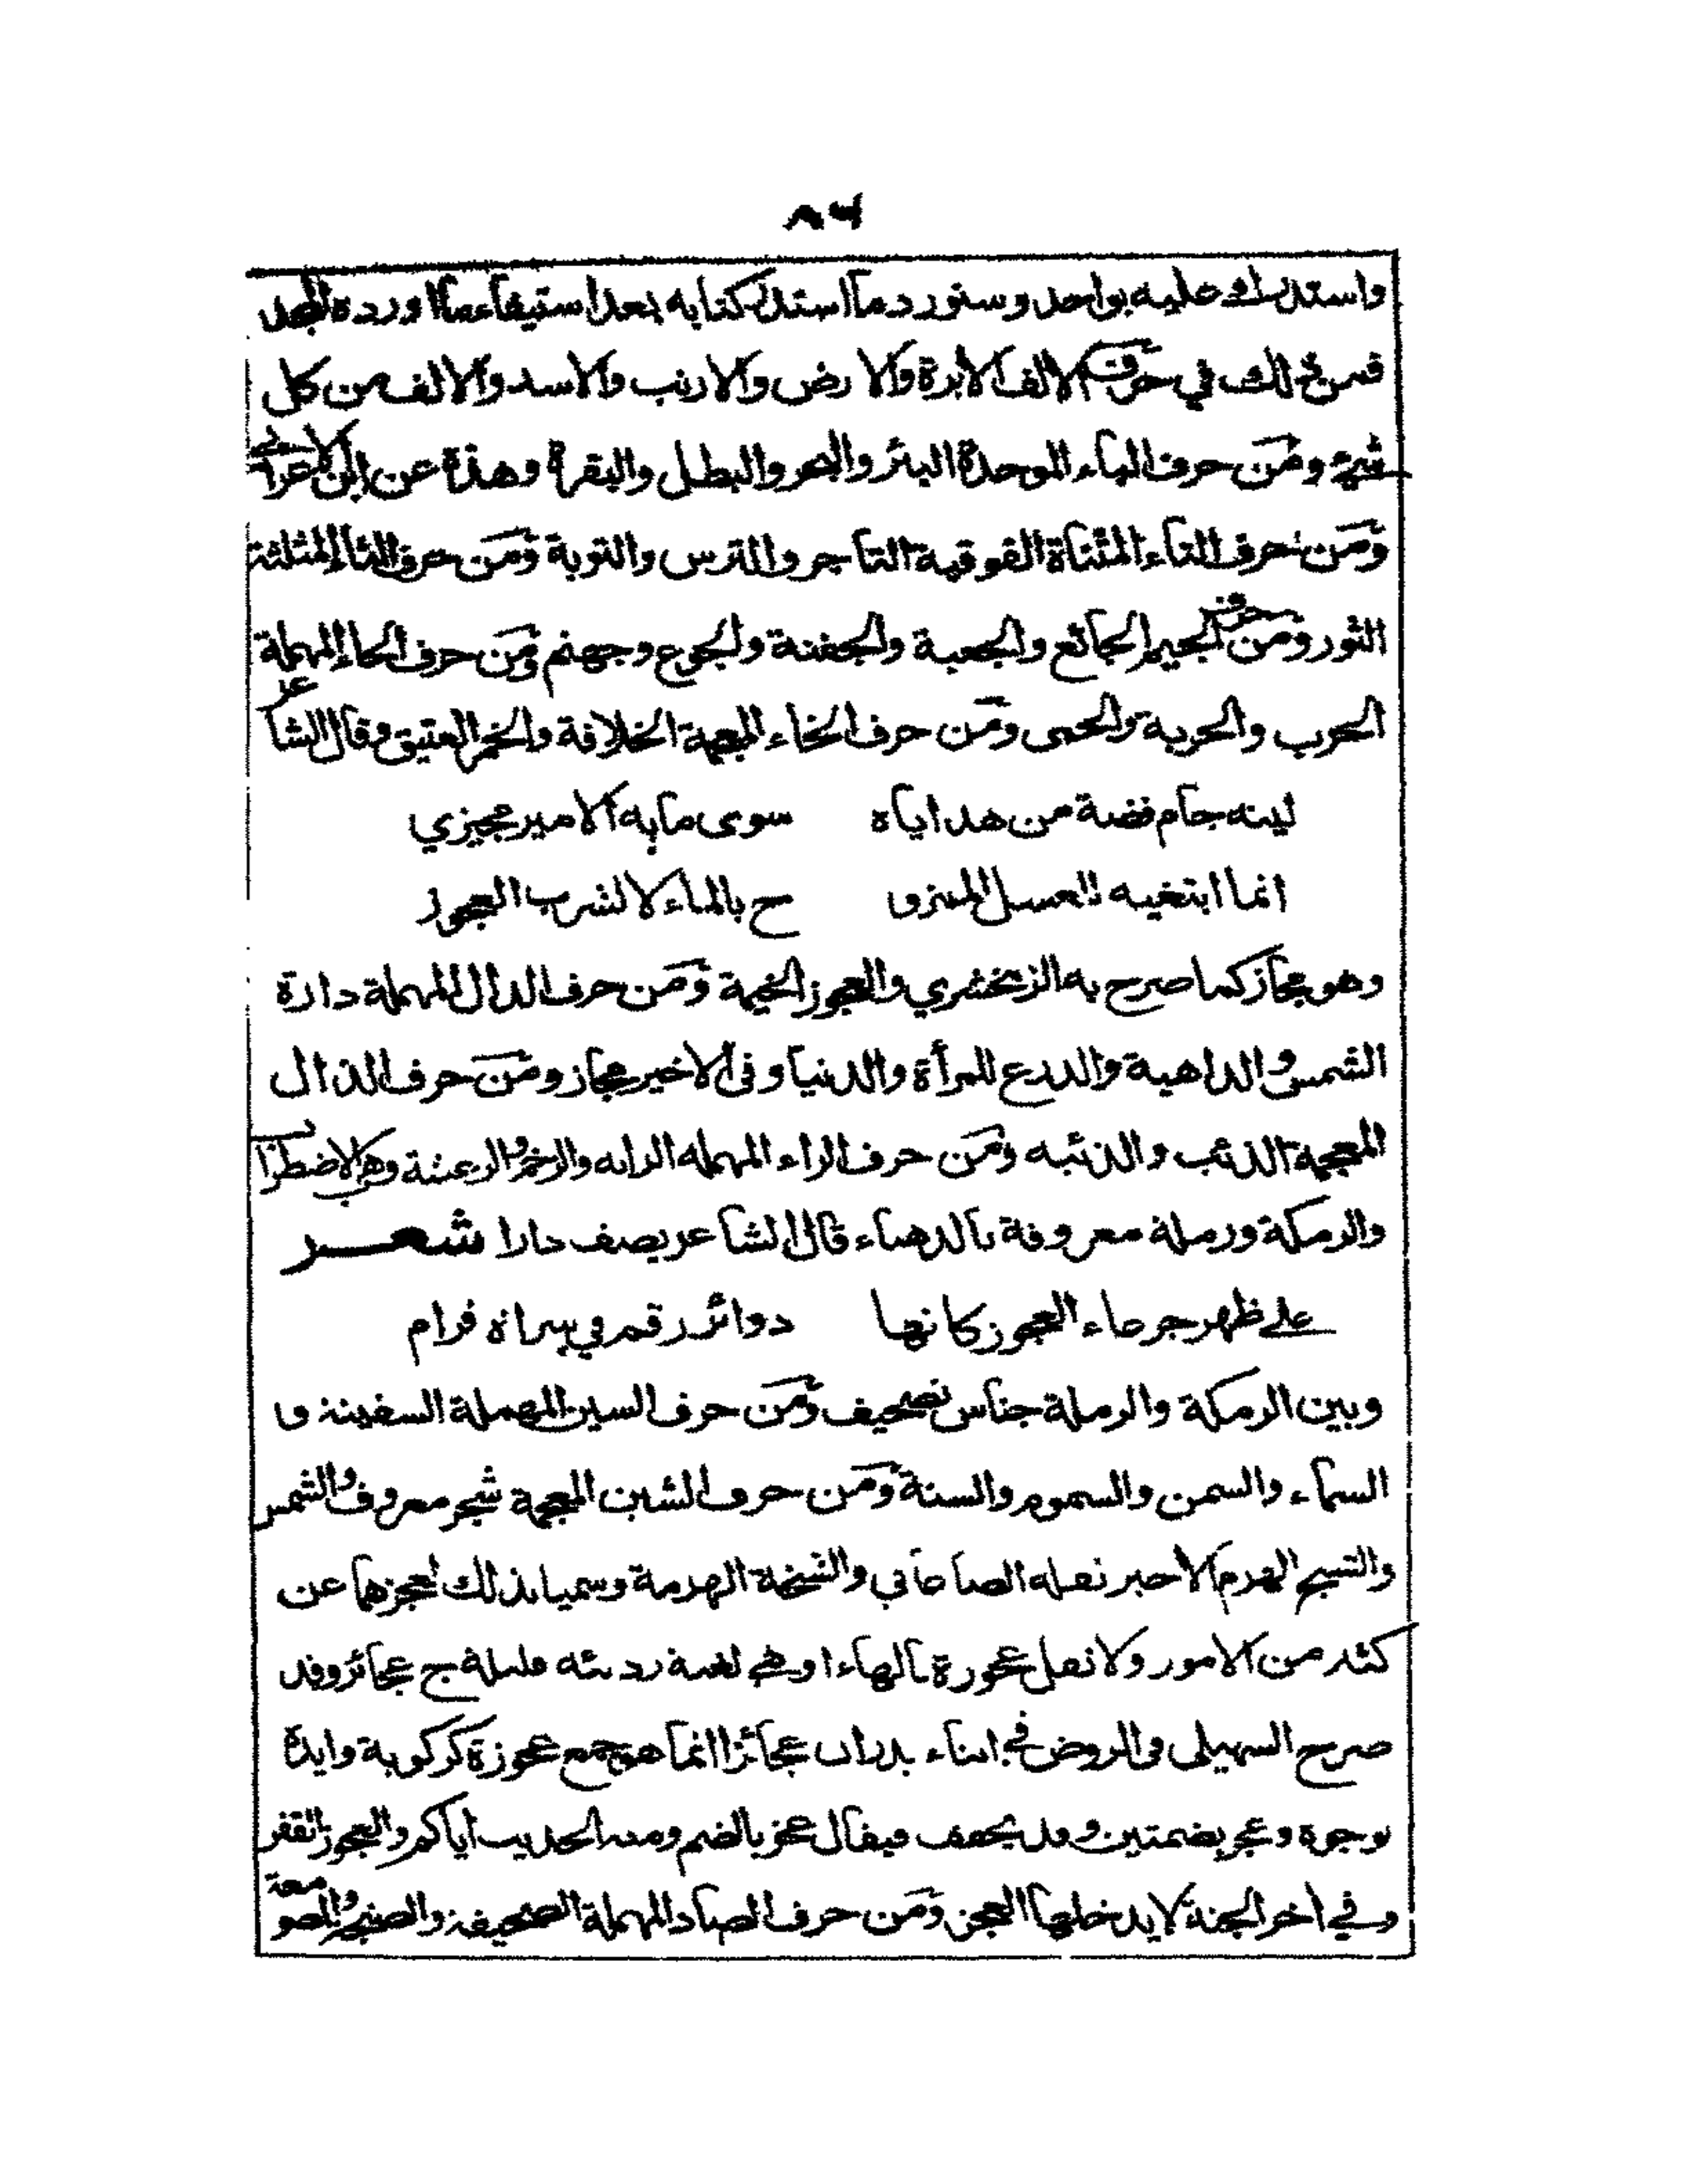 ٨٦
واستدرك عليه بواحد وسنورد ما استدركنا به بعد استيفاء ما اورده المجد
فمن ذلك في حرف الالف الابرة والارض والارنب والاسد والالف من كل
شيء ومن حرف الباء الموحدة البئر والبحر والبطل والبقرة وهذة عن ابن الاعرابي
ومن حرف التاء المثناة الفوقية التاجر والترس والتوبة ومن حرف الثاء المثلثة
الثور ومن حرف الجيم الجائع والجعبة والجفنة والجوع وجهنم ومن حرف الحاء المهملة
الحرب والحربة والحمى ومن حرف الخاء المعجمة الخلافة والخمر العتيق وقال الشاعر
ليته جام فضة من هداياه سوى ما به الامير مجيزي
انما ابتغيه للعسل الممزو ح بالماء لا لشرب العجوز
وهو مجاز كما صرح به الزمخشري والعجوز الخيمة ومن حرف الدال المهملة دارة
الشمس والداهية والدرع للمرأة والدنيا وفى الاخير مجاز ومن حرف الذال
المعجمة الذئب والذئبه ومن حرف الراء المهمله الرايه والرخم والرعشة وهى الاضطراب
والرمكة ورملة معروفة بالدهناء قال الشاعر يصف دارا شعر
على ظهر جرعاء العجوز كانها دوائر رقم في سراة قرام
وبين الرمكة والرملة جناس تصحيف ومن حرف السين المهملة السفينة و
السماء والسمن والسموم والسنة ومن حرف الشين المعجمة شجر معروف والشمس
والشيخ الهرم الاخير نقله الصاغاني والشيخة الهرمة وسميا بذلك لعجزهما عن
كثير من الامور ولا تقل عجوزة بالهاء او هي لغية رديئه قليلة ج عجائز وقد
صرح السهيلى فى الروض في اثناء بدر ان عجائز انما هو جمع عجوزة كركوبة وايده
بوجوه وعجز بضمتين وقد يخفف فيقال عجز بالضم ومنه الحديث اياكم والعجوز العقر
وفي اخر الجنة لا يدخلها العجز ومن حرف الصاد المهملة الصحيفة والصنجة والصومعة